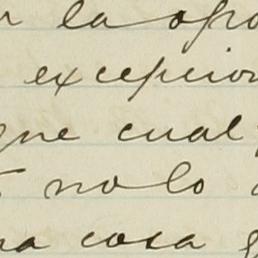 la opo
excepcion
que cual
no lo
na cosa